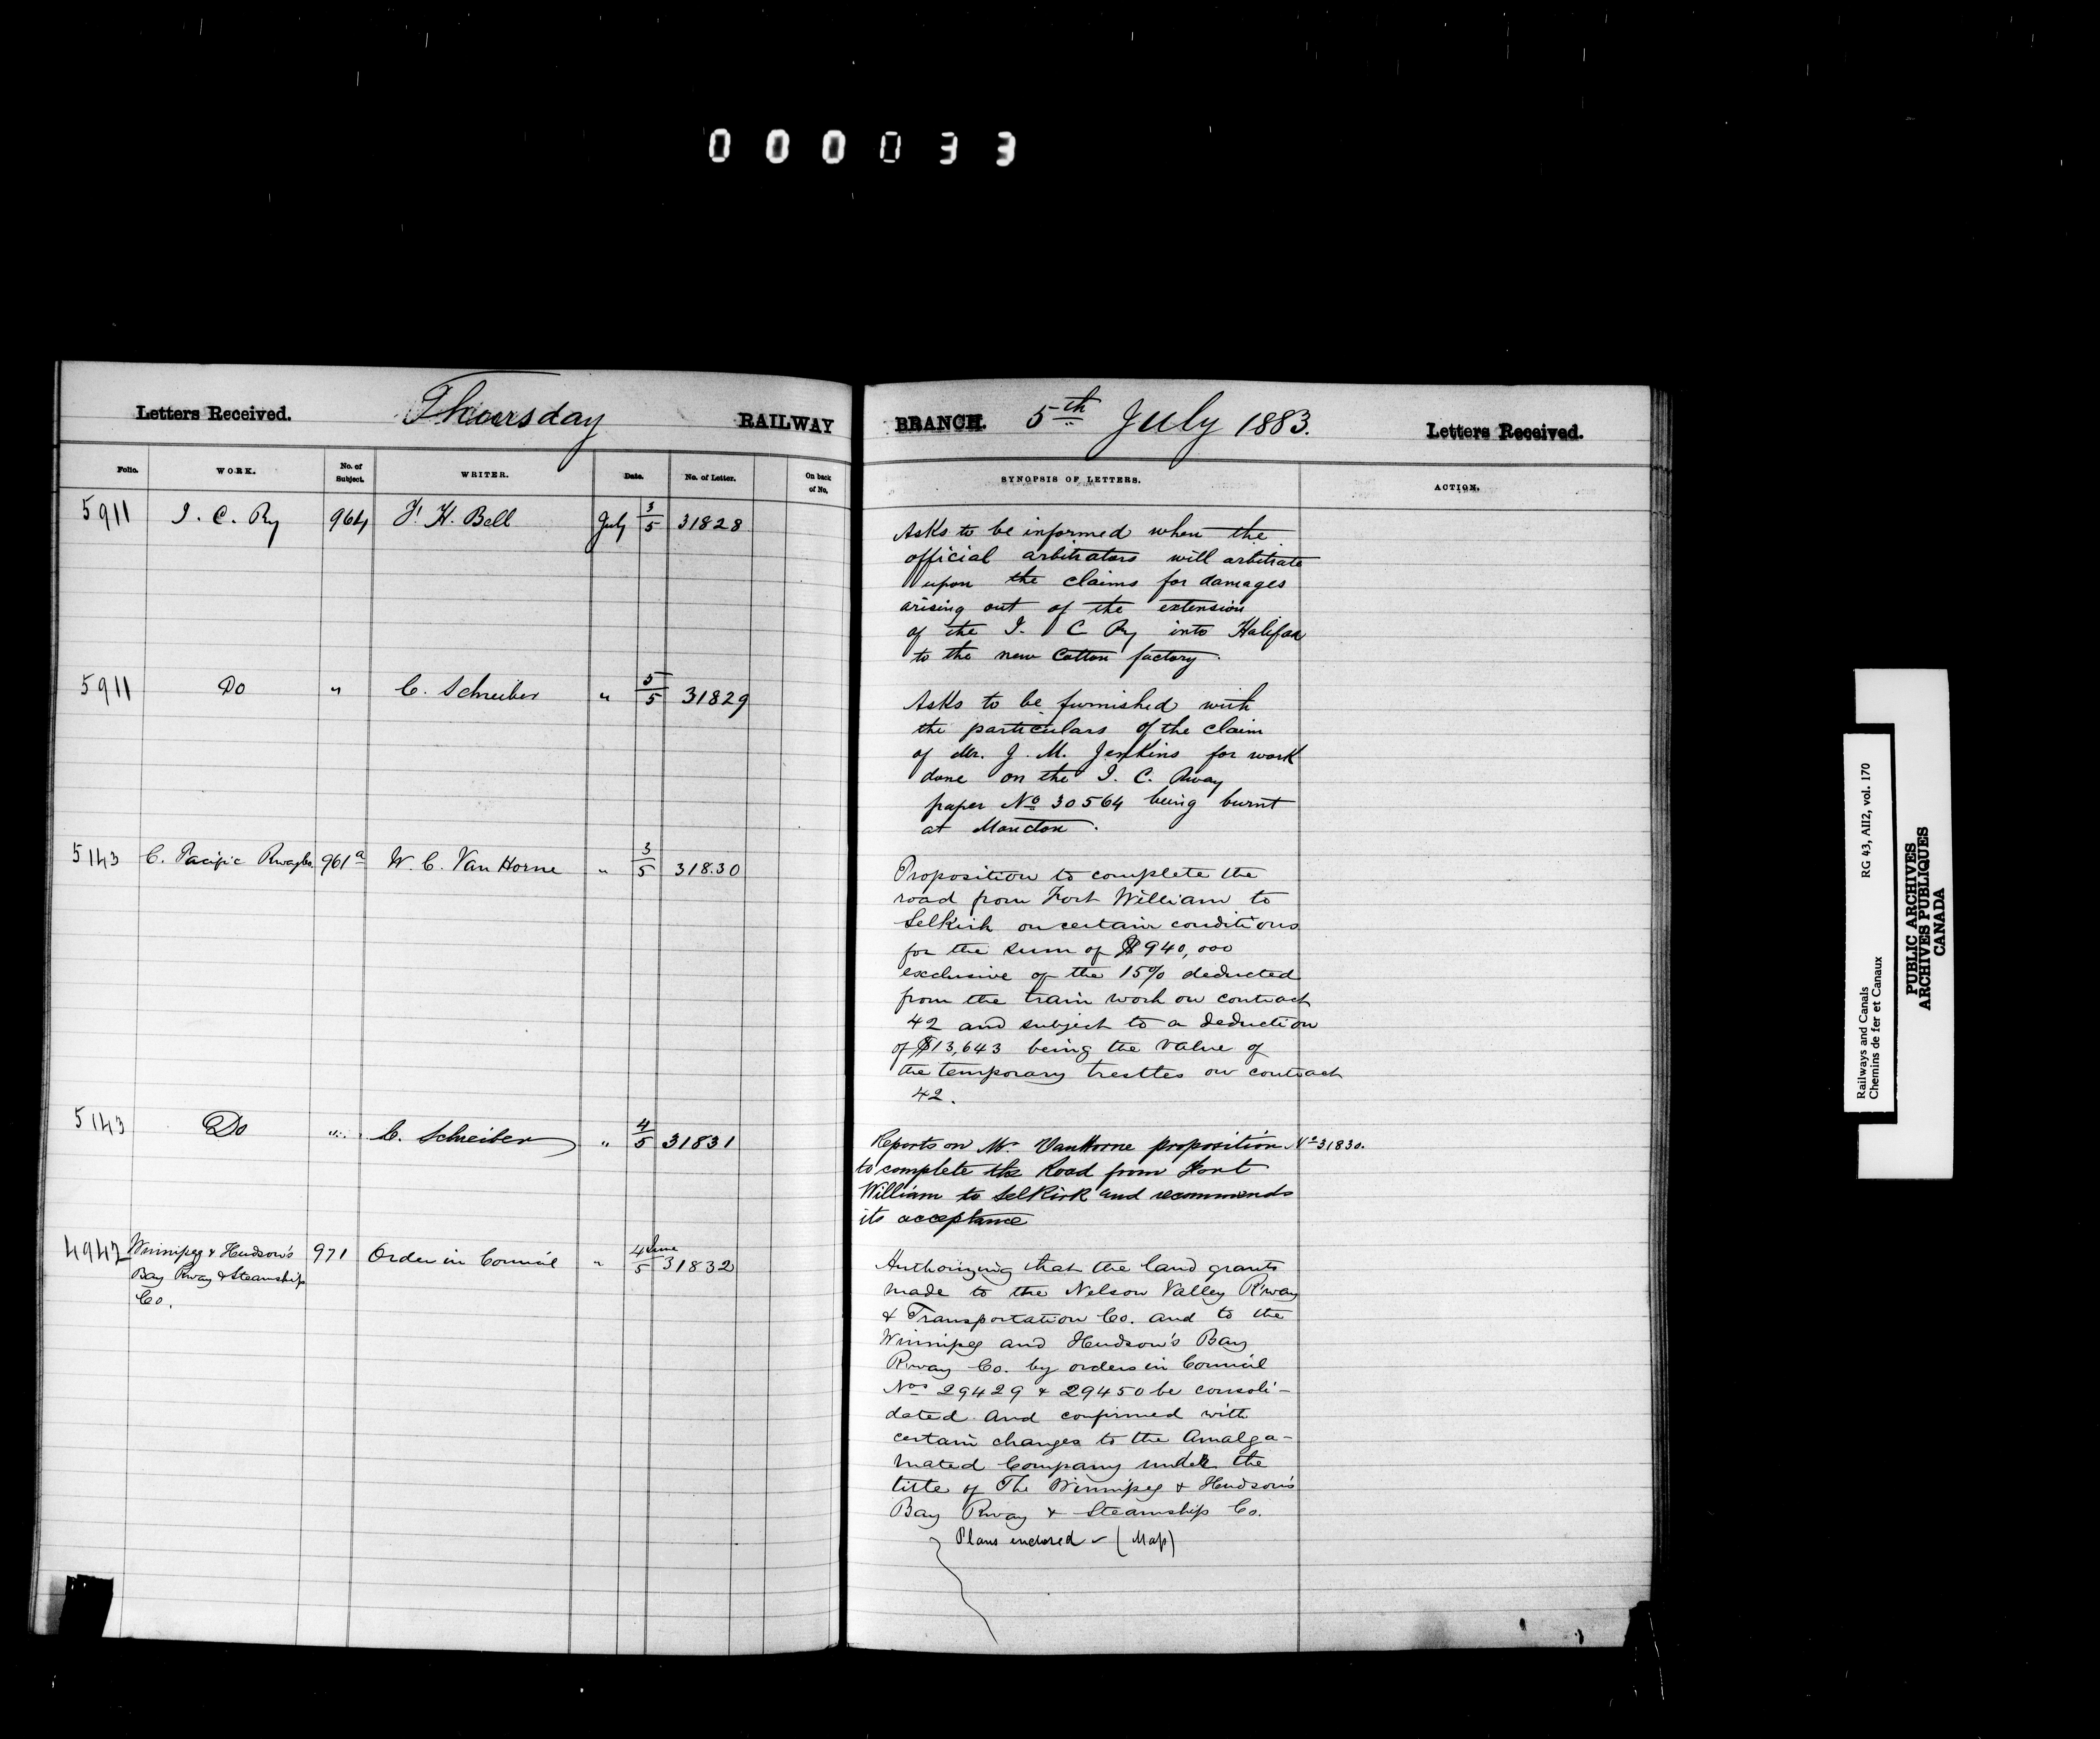 000033
Letters Received. Thursday RAILWAY BRANCH. 5th July 1883. Letters Received.
Folio. WORK. No. of Subject. WRITER. Date. No. of Letter. On back of No. SYNOPSIS OF LETTERS. ACTION.
5911 I. C. Ry 964 F. H. Bell July 3/5 31828
Asks to be informed when the
official arbitrators will arbitrate
upon the claims for damages
arising out of the extension
of the I. C Ry into Halifax
to the new Cotton factory.
5911 Do " C. Schreiber " 5/5 31829
Asks to be furnished with
the particulars of the claim
of Mr. J. M. Jenkins for work
done on the I. C. Rway
paper No 30564 being burnt
at Moncton.
5143 C. Pacific Rway Co. 961a W. C. Van Horne " 3/5 31830
Proposition to complete the
road from Fort William to
Selkirk on certain conditions
for the sum of $940,000
exclusive of the 15% deducted
from the train work on contract
42 and subject to a deduction
of $13,643 being the value of
the temporary trestles on contract
42.
5143 Do " C. Schreiber " 4/5 31831
Reports on Mr VanHorne proposition No 31830.
to complete the Road from Fort
William to Selkirk and recommends
its acceptance
4942 Winnipeg & Hudson's 971 Order in Council " 4 June/5 31832
Bay Rway & Steamship
Co.
Authorizing that the land grants
made to the Nelson Valley Rway
& Transportation Co. and to the
Winnipeg and Hudson's Bay
Rway Co. by orders in Council
Nos 29429 & 29450 be consoli-
dated and confirmed with
certain changes to the Amalga-
mated Company under the
title of The Winnipeg & Hudson's
Bay Rway & Steamship Co.
Plans enclosed (Map)
Railways and Canals RG 43, AII2, vol. 170
Chemins de fer et Canaux
PUBLIC ARCHIVES
ARCHIVES PUBLIQUES
CANADA